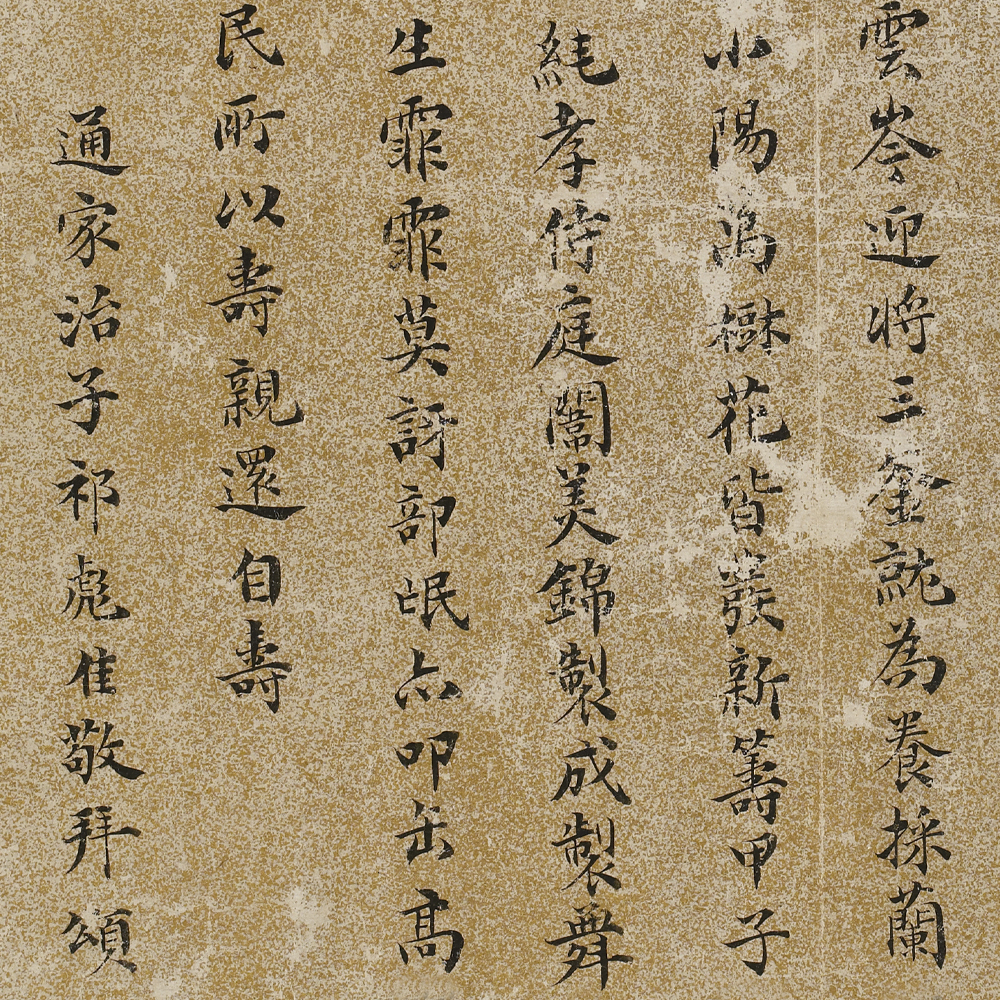 雲岑迎将三釜就為養採蘭
小陽樹花皆發新籌甲子
純孝侍庭闈美錦製成製舞
生霏霏莫訝部氓亦叩缶高
民所以壽親還自壽
通家治子祁彪佳敬拜頌